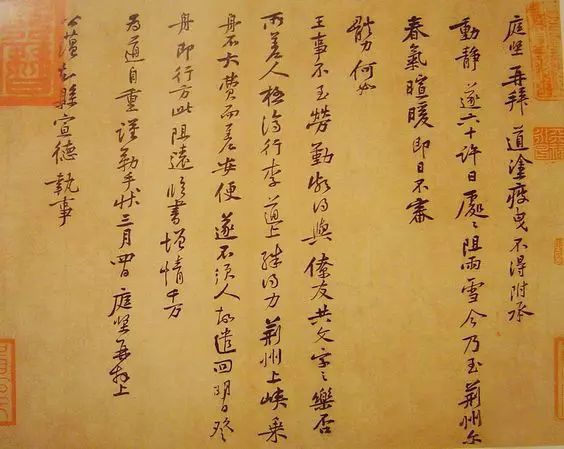 庭堅再拜 道塗疲曳不得附承
動靜遂六十許日處〻阻雨雪今乃至荊州尔
春氣暄暖即日不審
體力何如
王事不至勞勤頗得與僚友共文字之樂否
所差人極濟行李道上殊得力荊州上峽乘
舟不大費而差安便遂不須人故遣回明日發
舟即行方此阻遠臨書增情千万
為道自重謹勒手狀三月四日庭堅再拜上
公蘊知縣宣德執事